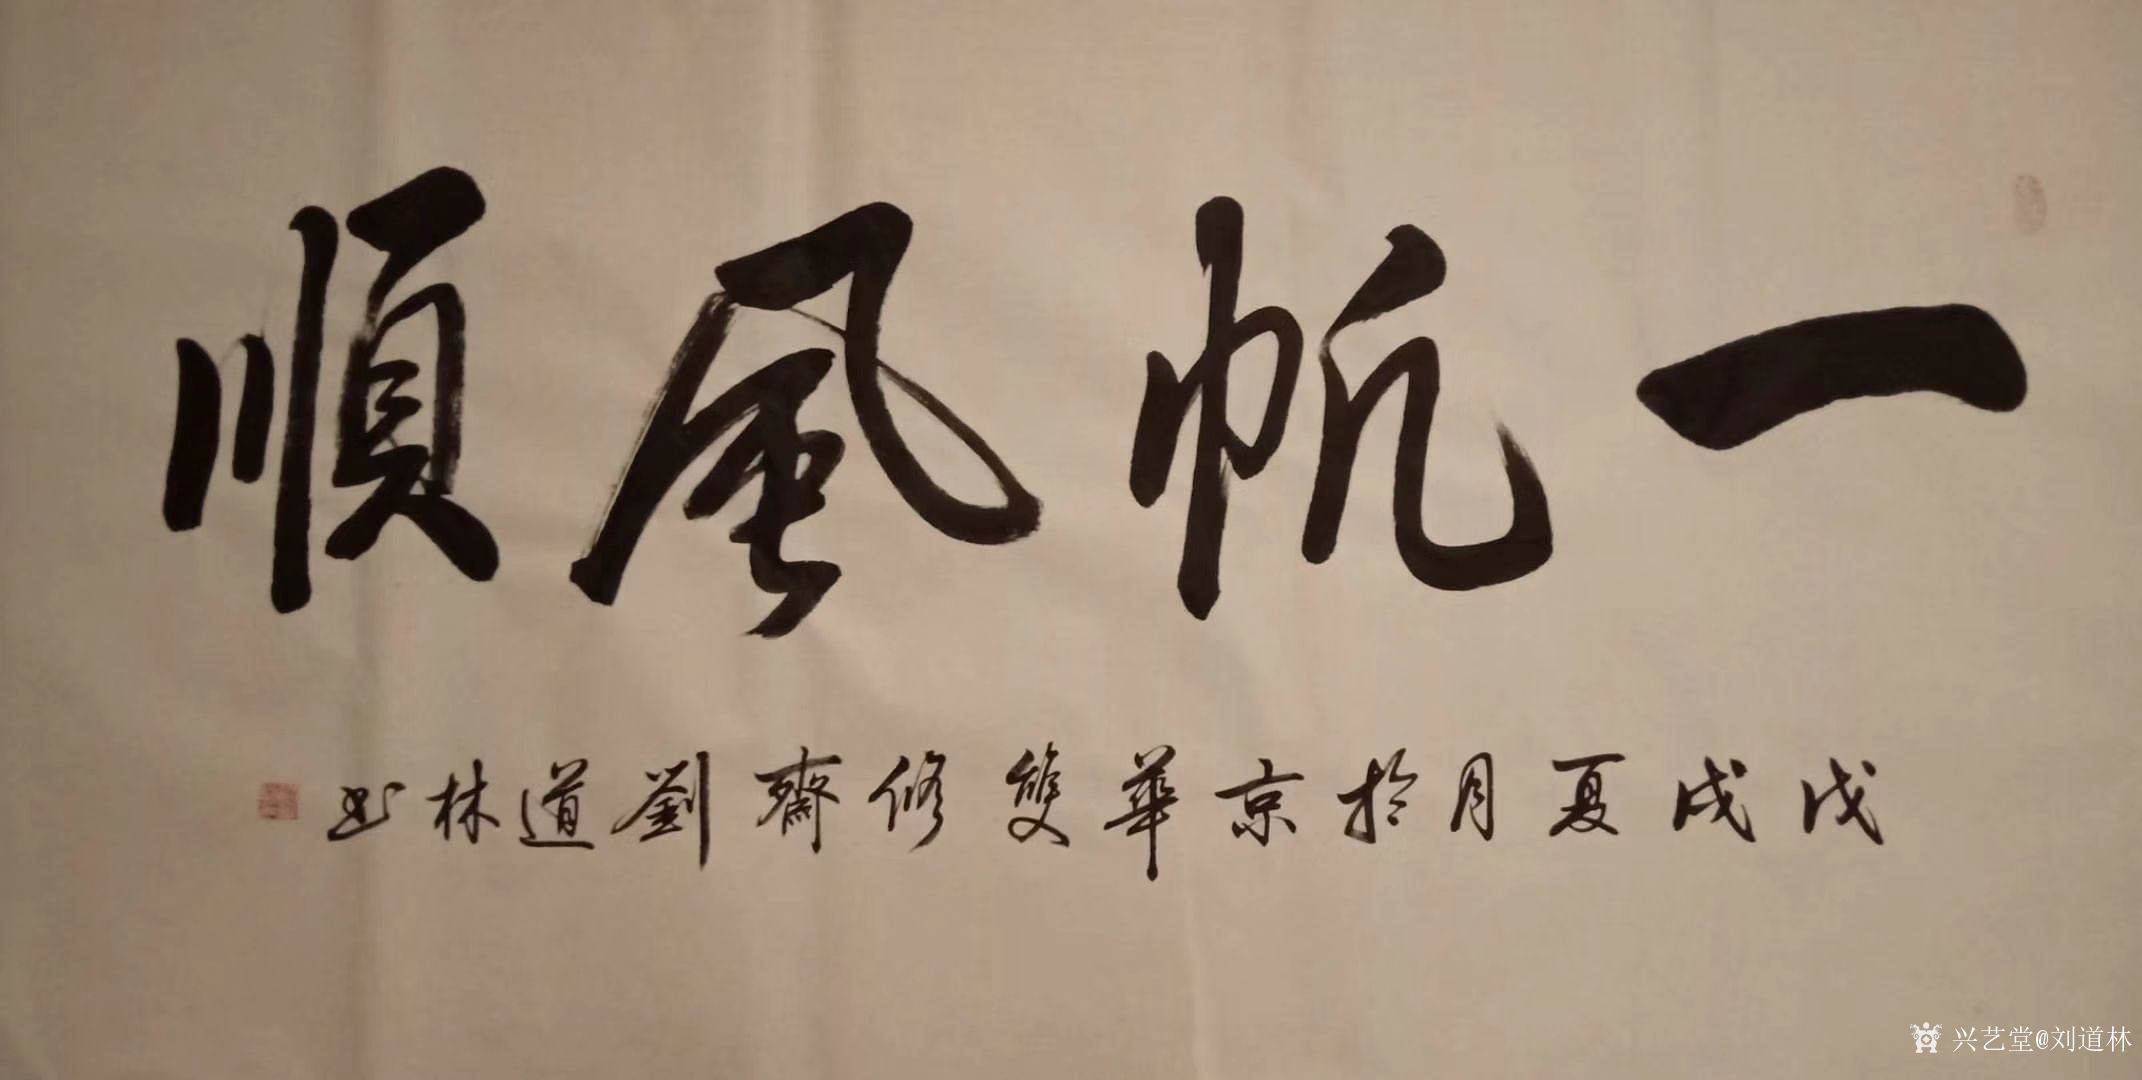 一帆風順
戊戌夏月於京華雙修齋劉道林书
兴艺堂@刘道林